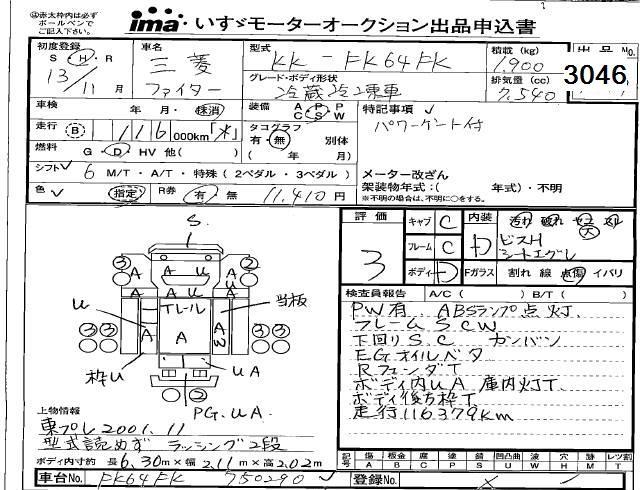 ④赤太枠内は必ず
ボールペンで
ご記入下さい。
ima いすゞモーターオークション出品申込書
初度登録 S・H・R 13年 11月
車名 三菱 ファイター
型式 KK-FK64FK
グレード・ボディ形状 冷蔵冷凍車
積載(kg) 1,900
排気量(cc) 7,540
出品No. 3046
車検 年・月・抹消
装備 A P P C S W
特記事項
パワーゲート付
走行 B 116 000km
タコグラフ 有・無 別体 (年 月)
燃料 G・D・HV 他( )
シフト 6 M/T・A/T・特殊(2ペダル・3ペダル)
メーター改ざん
架装物年式:( 年式)・不明
※不明の場合は、不明に○をする。
色 指定 R券 有 無 11,410円
評価 3
キャブ C
フレーム C
ボディー D
内装 D 汚れ 破れ コゲ スレ 大
ビスH
シートエグレ
Fガラス 割れ 線 点傷 イパリ
検査員報告 A/C( ) B/T( )
PW有. ABSランプ点灯.
フレームSCW
下回りS.C カンバン
EGオイルベタ
RフェンダT
ボディ内UA 庫内灯T.
ボディ後方枠T
走行116379km
S.
③ ②
A A U A
A A U A
U Tレール 当板
③③ A A A W ③③
枠U U A
②
PG.UA.
上物情報
東プレ2001.11
型式読めず ラッシング2段
ボディ内寸約 長6.30m×幅2.11m×高2.02m
記号 傷 A 板金 B 腐 C 塗 P 錆 S 凹凸曲 U 凹凸曲 W 穴 H 外 M 切割 T レツ割
車台No. FK64FK 750290
登録No.